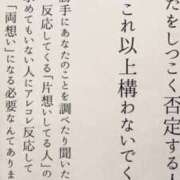 たをしつこく否定する人
これ以上構わないでく
勝手にあなたのことを調べたり聞いた
反応してくる「片想いしてる人」の
求めてもいない人にアレコレ反応して
「両想い」になる必要なんてありま